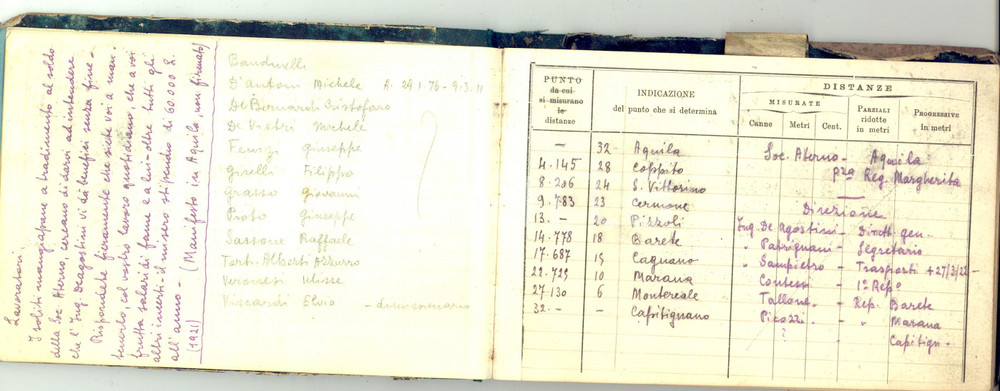 Lavoratori,
I soliti mangiapane a tradimento al soldo
della Soc. Aterno, cercano di darvi ad intendere
che l'Ing. Deagostini vi dà benefizi senza fine -
Rispondete fieramente che siete voi a man-
tenerlo, col vostro lavoro quotidiano, che a voi
frutta salari di fame e a lui - oltre tutti gli
altri incerti - il misero stipendio di 60.000 L.
all'anno - (Manifesto in Aquila, non firmato)
(1921)
Bandinelli
D'Antoni Michele A. 29.1.76 - 9.3.11
De Bernardi Cristoforo
De Vietri Michele
Giuseppe
Girelli Filippo
Grasso Giovanni
Proto Giuseppe
Sassone Raffaele
Tert. Alberti Azzurro
Veronesi Ulisse
Viscardi Elvio - dimissionario
PUNTO da cui si misurano le distanze
INDICAZIONE del punto che si determina
DISTANZE
MISURATE
Canne Metri Cent.
PARZIALI ridotte in metri
PROGRESSIVE in metri
— 32 Aquila
4.145 28 Coppito
8.206 24 S. Vittorino
9.783 23 Cermone
13. — 20 Pizzoli
14.778 18 Barete
17.687 15 Cagnano
22.729 10 Marana
27.130 6 Montereale
32. — — Capitignano
Soc. Aterno - Aquila
pza Reg. Margherita
—
Direzione
Ing. De Agostini - Dirett. gen.
" Patrignani - Segretario
" Sampietro - Trasporti +27/3/22 -
" Contessi - 1° Rep°
" Tallone - Rep. Barete
Picozzi - " Marana
? Capitign -